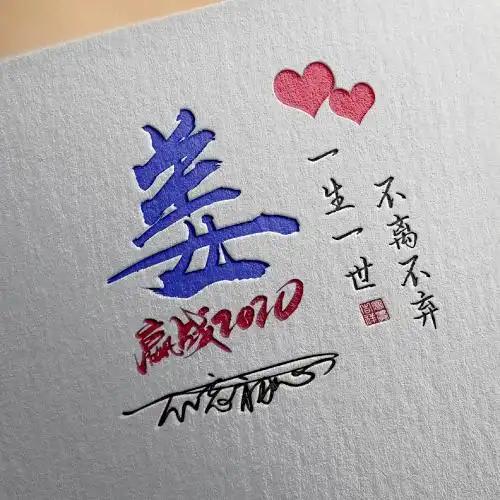 姜
赢战2020
一生一世
不离不弃